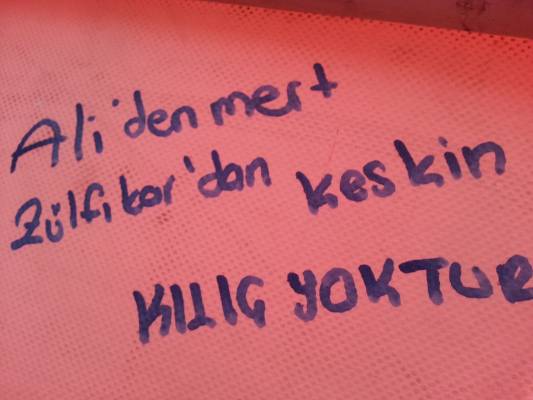 Ali'den mert
Zülfikar'dan keskin
KILIÇ YOKTUR